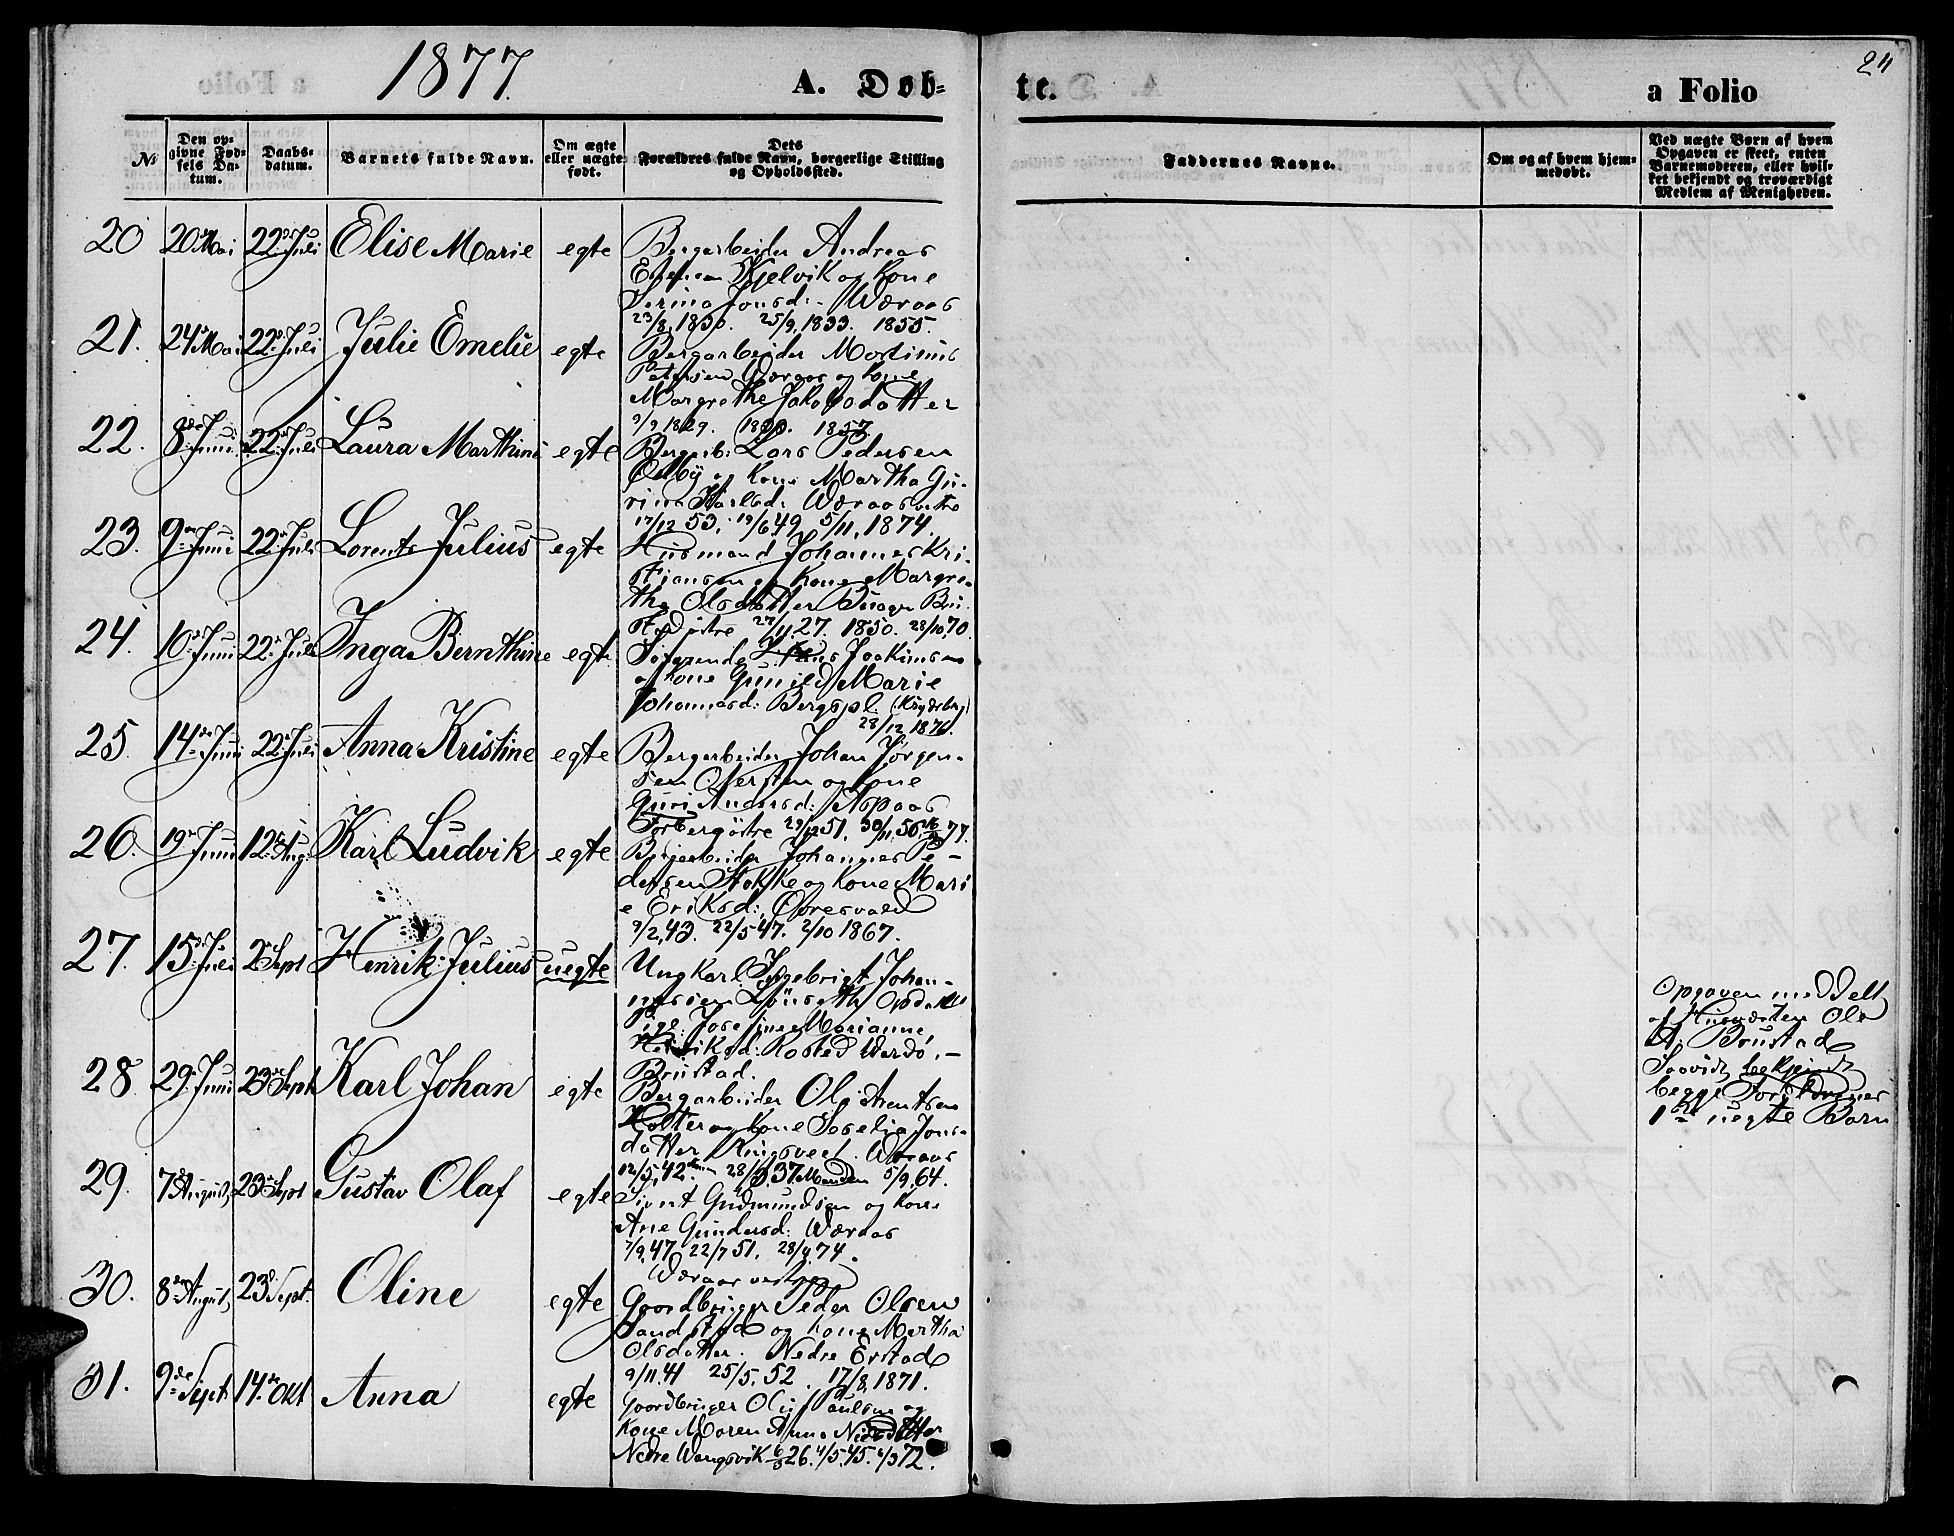 1877.
A. Døb=
te.
a Folio
24
No
Den op=
givne Fød=
sels Da=
tum.
Daabs=
datum.
Barnets fulde Navn.
Om ægte
eller uægte
født.
Dets
Forældres fulde Navn, borgerlige Stilling
og Opholdssted.
Faddernes Navne.
Om og af hvem hjem=
medøbt.
Ved uægte Børn af hvem
Opgaven er skeet, enten
Barnemoderen, eller hvil=
ket bekjendt og troværdigt
Medlem af Menigheden.
20 20 Mai 22 Juli Elise Marie egte Bergarbeider Andreas
Kjelvik og Kone
Serina Jonsd: Woraas
23/8 1830. 25/9 1833. 1855.
21. 24 Mai 22 Juli Julie Emelie egte Bergarbeider Mortinus
Petersen Woraas og Kone
Margrethe Jakobsdatter
1829. 1857
22. 8 Juni 22 Juli Laura Marthine egte Bergarb: Lars Pedersen
og Kone Martha Gu-
rina Karlsd: Woraasvestre
17/12 53. 19/6 49 5/11, 1874.
23. 9 Juni 22 Juli Lorents Julius egte Husmand Johannes Kri-
stiansen og Kone Margre-
the Olsdatter
1850. 28/10 70.
24. 10 Juni 22 Juli Inga Bernthine egte Søfarende Joakimsen
og Kone Gunild Marie
Johannesd: Bergspl:
28/12 1870.
25. 14 Juni 22 Juli Anna Kristine egte Bergarbeider Johan Jørgen-
sen og Kone
Guri Andersd: Aspaas
29/12 51. 30/11 56. 77.
26. 19 Juni 12 Aug: Karl Ludvik egte Bergarbeider Johannes Pe-
dersen Stokke og Kone Mari-
e Eriksd:
9/2, 43. 22/5 47. 2/10 1867.
27. 15 Juli 2 Sept Henrik Julius uegte Ungkarl Ingebrigt Johan-
nessen Opdahl
Pige: Josefine Marianne
Henriksd: Rosted Werdø.-
Brustad.
Opgaven meddelt
af Husværten Ole
A: Brustad
Saavidt bekjendt
begge Forældrenes
1ste uegte Barn
28 29 Juni 23 Sept Karl Johan egte Bergarbeider Ole Arentsen
Holter og Kone Serelie Jons-
datter Woraas
12/5, 42. 37 5/9, 64.
29. 7 August, 23 Sept Gustav Olaf egte Sivert Gudmundsen og Kone
Ane Gundersd: Woraas
7/9, 47 22/7 51. 28/9 74.
Woraas vestre
30. 8 August, 23 Sept. Oline egte Gaardbruger Peder Olsen
Sandstad og Kone Martha
Olsdatter. Nedre Erstad
9/11. 41 25/5. 52 17/8, 1871.
31. 9de Sept. 14de Okt Anna egte Gaardbruger Oluf Paulsen og
Kone Maren Anna Nilsdatter
Nedre Wangsvik 26. 4/5. 45. 72.